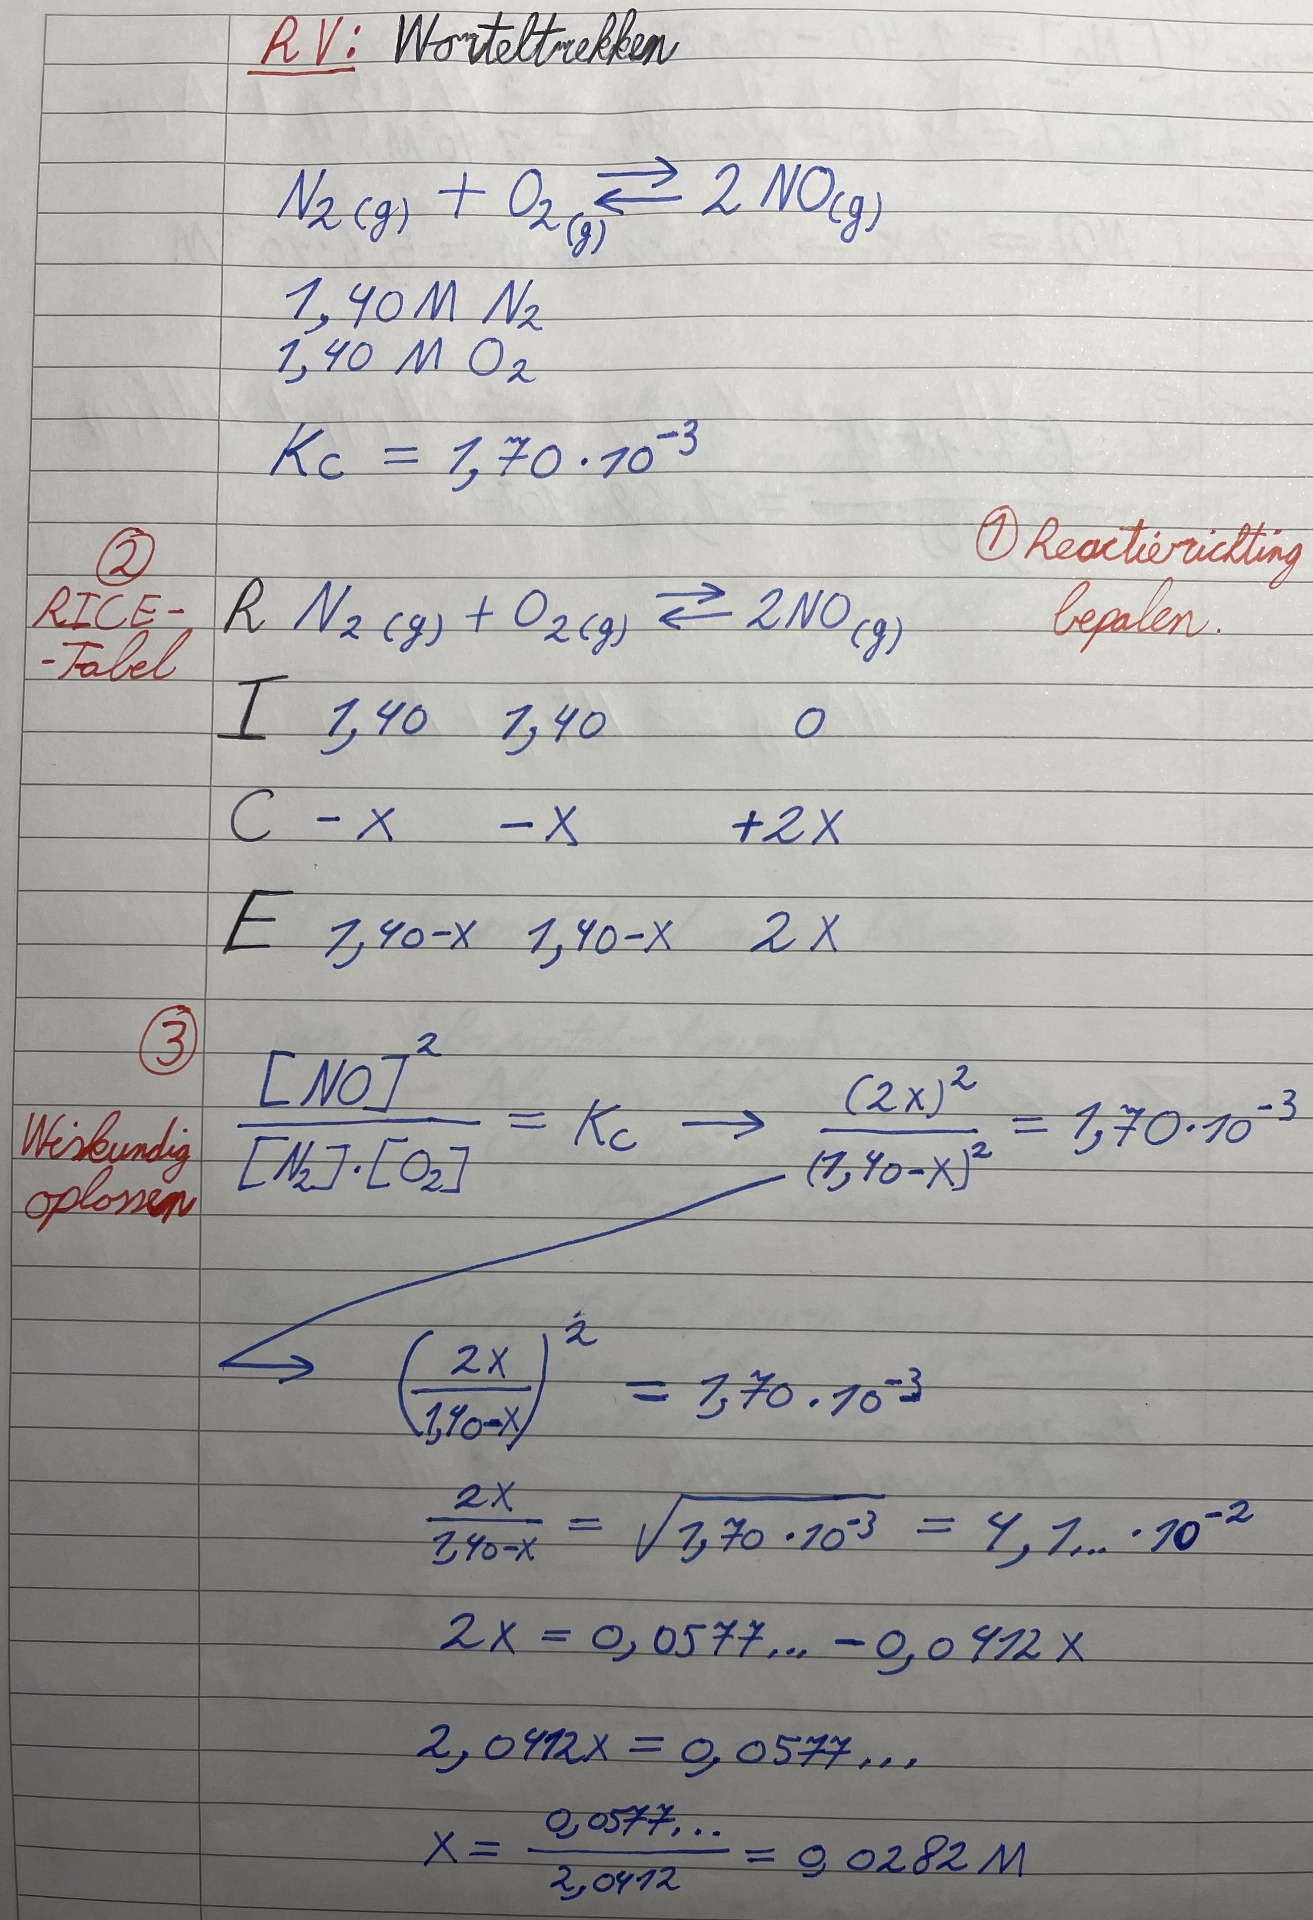 RV: Worteltrekken
N₂(g) + O₂(g) ⇌ 2 NO(g)
1,40 M N₂
1,40 M O₂
Kc = 1,70 · 10⁻³
① Reactierichting
bepalen.
②
RICE-
-Tabel
R N₂(g) + O₂(g) ⇌ 2NO(g)
I 1,40 1,40 0
C -x -x +2x
E 1,40-x 1,40-x 2x
③
Wiskundig
oplossen
[NO]² / [N₂]·[O₂] = Kc → (2x)² / (1,40-x)² = 1,70·10⁻³
→ (2x / 1,40-x)² = 1,70·10⁻³
2x / 1,40-x = √1,70·10⁻³ = 4,1...·10⁻²
2x = 0,0577... - 0,0412x
2,0412x = 0,0577...
x = 0,0577... / 2,0412 = 0,0282 M